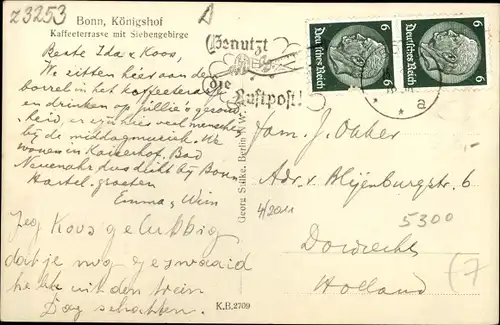 z3253
Bonn, Königshof
Kaffeeterrasse mit Siebengebirge
Beste Ida & Koos,
We zitten hier aan de
borrel in het
en drinken op Jillie's gezond
heid, er zijn veel menschen
bij de middagmuziek. We
wonen in Kaiserhof, Bad
Neuenahr, dus dicht bij Bonn
Hartel. groeten
Emma & Wim
Zeg Koos gelukkig
dat je nog gezwaaid
hebt uit den trein
Dag schatten.
Benutzt
die
Luftpost!
Deutsches Reich
6
Deutsches Reich
6
a
Georg Stilke, Berlin
K.B. 2709
Fam. J.
Adr. v. Blijenburgstr. 6
4/2011
5300
Dordrecht
Holland
(7